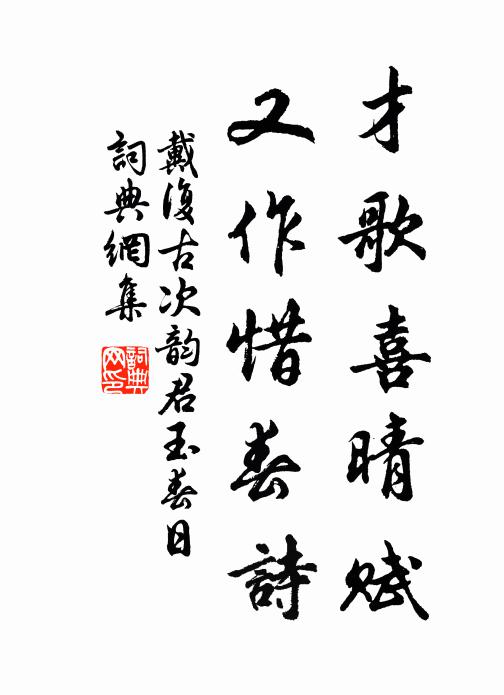 才歌喜晴赋
又作惜春詩
戴復古次韵君玉春日
詞典網集
詞典
网印